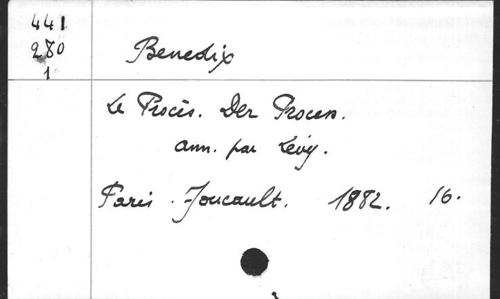 441
280
1
Benedix
Le Procès. Der Process.
ann. par Lévy.
Paris. Foucault. 1882. 16.